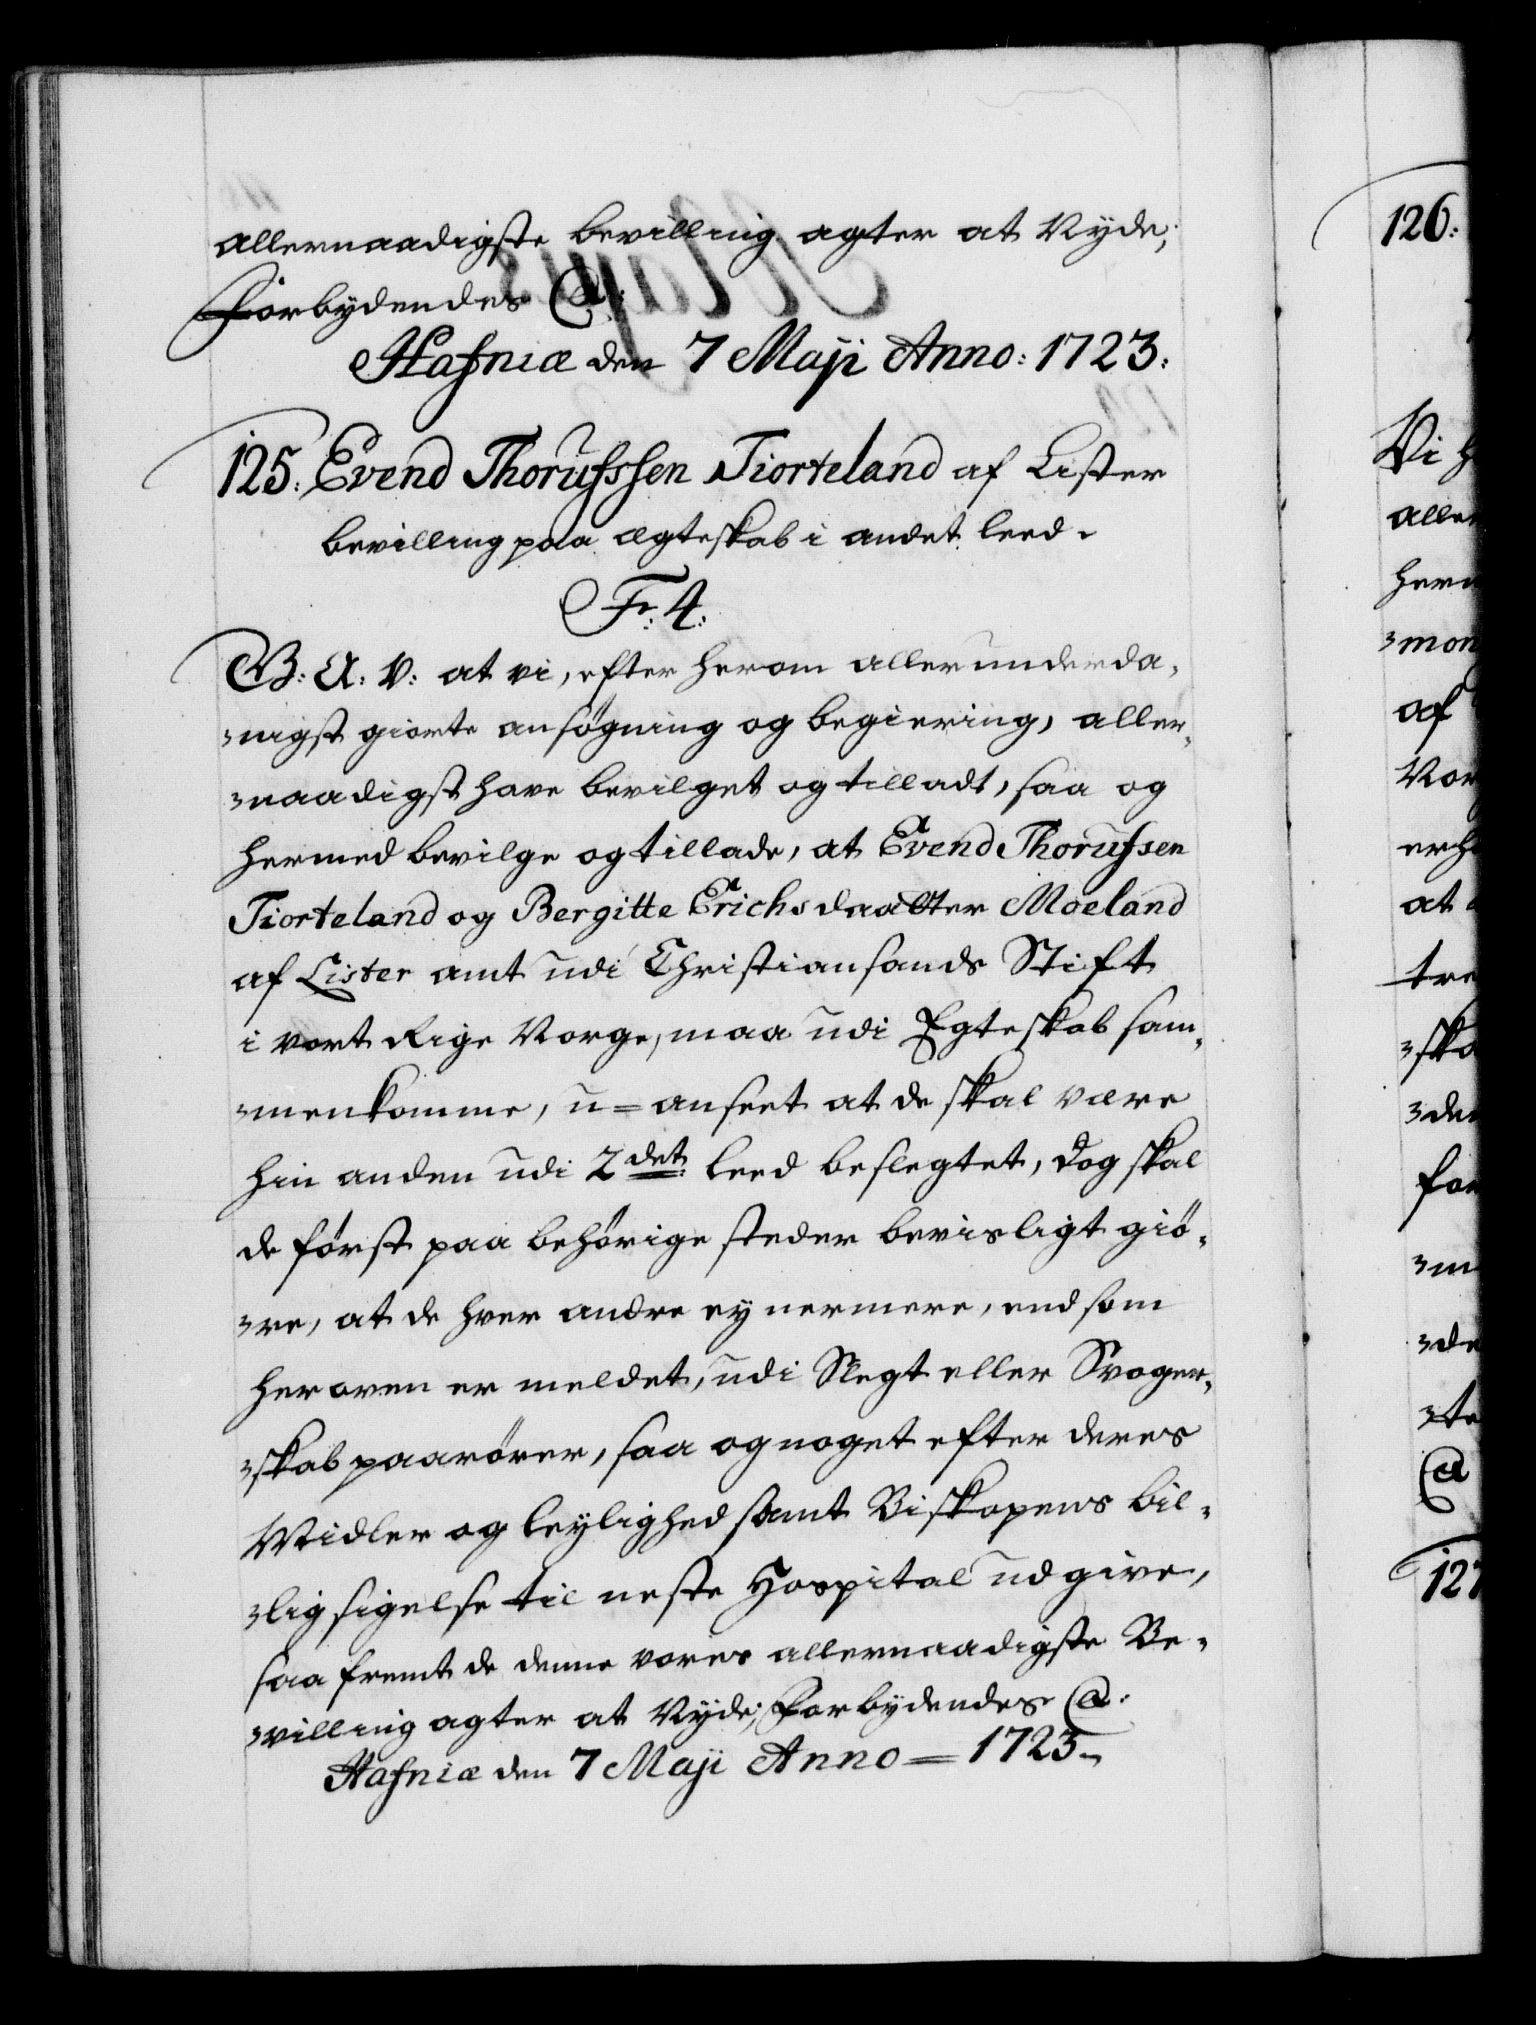 allernaadigste bevilling agter at Nyde;
Forbydendes &:
Hafniæ den 7 Maji Anno: 1723:
125. Evend Thorufssen Tiorteland af Lister
bevilling paa ægteskab i andet leed.
Fr: 4:
G. A. V: at vi, efter herom allerunderda-
-nigst giorte ansøgning og begiering, aller-
-naadigst have bevilget og tilladt, saa og
hermed bevilge og tillade, at Evend Thorufsen
Tiorteland og Bergitte Erichsdaatter Moeland
af Lister amt udi Christiansands Stift
i vort Rige Norge, maa udi Egteskab sam-
-menkomme, u=anseet at de skal være
hin anden udi 2det leed beslegtet, dog skal
de først paa behørige steder bevisligt giø-
-re, at de hver andre ey nermere, end som
heroven er meldet, udi Slegt eller Svoger-
-skab paarører, saa og noget efter deres
Midler og leylighed samt Biskopens bil-
-lig sigelse til neste Hospital udgive,
saa fremt de denne vores allernaadigste Be-
-villing agter at Nyde; Forbydendes &:
Hafniæ den 7 Maji Anno = 1723.
126:
Vi h
aller
herm
-mon
af
Nor
erh
at
tre
-ska
-de
for
-m
-de
-te
&
127